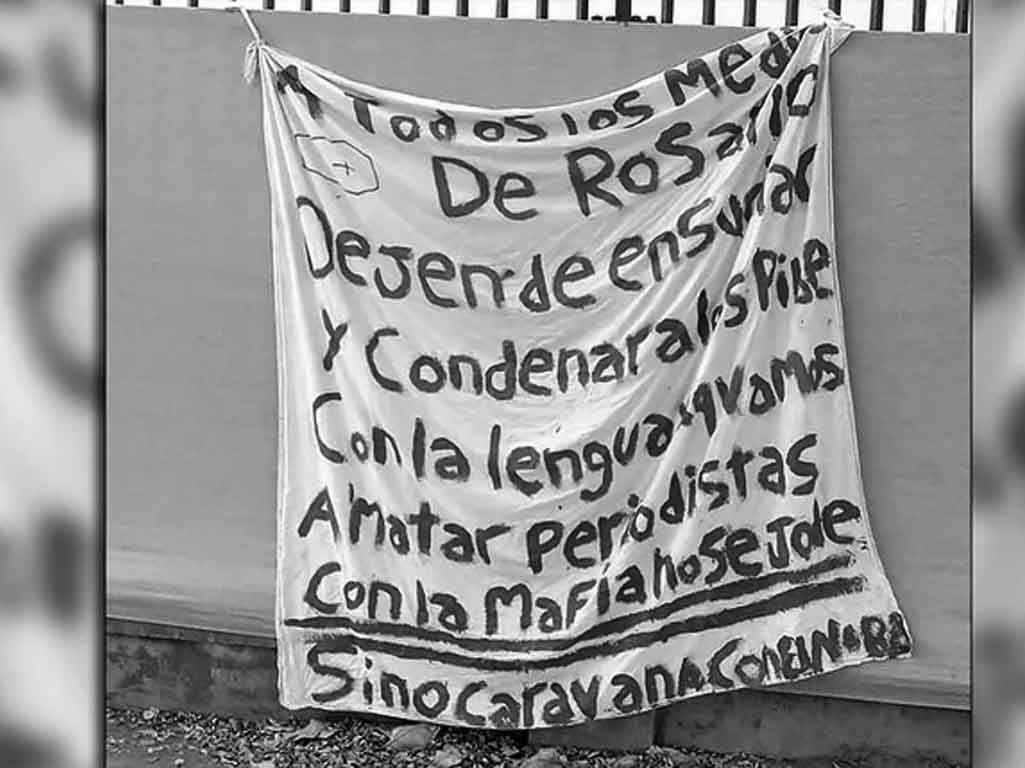 A Todos los Medi
De Rosario
Dejen de ensuciar
Y Condenar a los Pibe
Con la lengua qvamos
A matar periodistas
Con la Mafia no se Jode
Sino caravana Con El